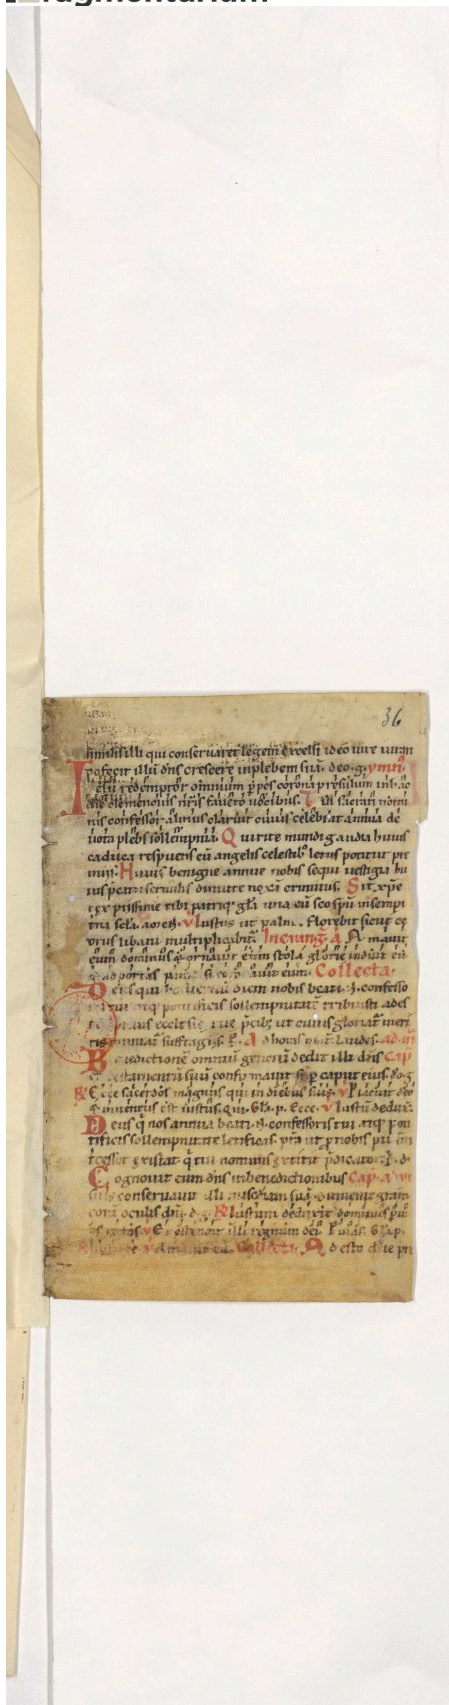 fragmentarium
36
similis illi qui conseruaret legem excelsi ideo iure iuran
do fecit illū dn̄s crescere in plebem suā. deo. g. ymn̄.
Iesu redemptor omnium ꝑpes corona presulum in hac
die clementius n̄ris faueto uocibus. T ui sacrati nomi
nis confessor almus claruit cuius celebrat annua de
uota plebs sollempnia. Q ui rite mundi gaudia huius
caduca respuens cū angelis celestib⁹ letus potitur pre
miis. H uius benigne annue nobis sequi uestigia hu
ius p̄cam̄ seruulis dimitte noxā criminis. S it xp̄e
rex piissime tibi patriq; gl̄a una cū sc̄o sp̄u in sempi
tnā sclā. am̄. Vl Iustus ut palm̄. florebit sicut ce
drus libani multiplicabit̄. In euanḡ. ā A mauit
eum dominus & ornauit eum stola glorie induit eū
& ad portas paradisi coronauit eum. Collecta.
D eus qui hodiernā diem nobis beati .N. confesso
ris tui atq; pontificis sollempnitate tribuisti ades
to ecclesie tue p̄cib; ut cuius gloriat̄ meri
tis muniat̄ suffragiis. ꝑ. A d horas
B enedictionē omniū gentiū dedit illi dn̄s Cap̄
& testamentū suū confirmauit sup̄ caput eius. do. g̃
R Ecce sacerdos magnus qui in diebus suis. V placuit deo
& inuentus est iustus. Qui. Gl̄a. p. Ecce. V Iustū dedux̄.
D eus q̄ nos annua beati .N. confessoris tui atq; pon
tificis sollempnitate letificas. p̄sta ut p nobis pius in
tcessor existat q̄ tui nominis extitit p̄dicator. ꝑ. d.
C ognouit eum dn̄s in benedictionibus Cap̄.
suis conseruauit illi misc̄diam suā & inuenit gr̄am
corā oculis dn̄i. d. g. R Iustum deduxit dominus
V Et ostendit illi regnum dei. Gl̄a. p.
V Amauit eū. Collecta. A desto dn̄e